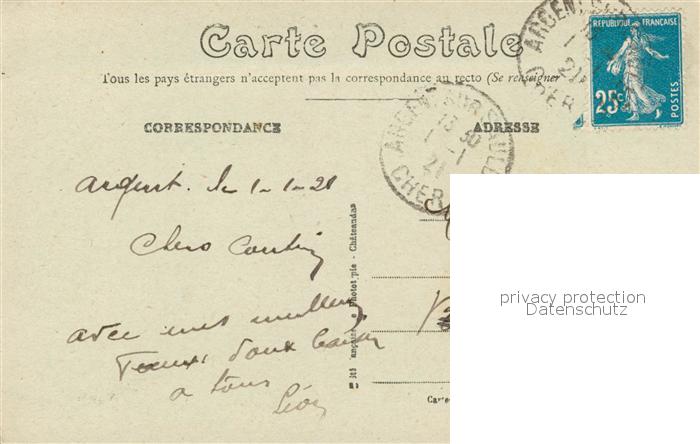 Carte Postale
Tous les pays étrangers n'acceptent pas la correspondance au recto (Se renseigner
REPUBLIQUE FRANÇAISE
25c
POSTES
CORRESPONDANCE
ADRESSE
ARGENT-SUR-SAULD
13 30
1 -1
21
CHER
Argent. le 1-1-21
Chers Cousins
avec mes meilleurs
Voeux doux baisers
a tous
Léon
Phototypie - Châteaudun
privacy protection
Datenschutz
Carte